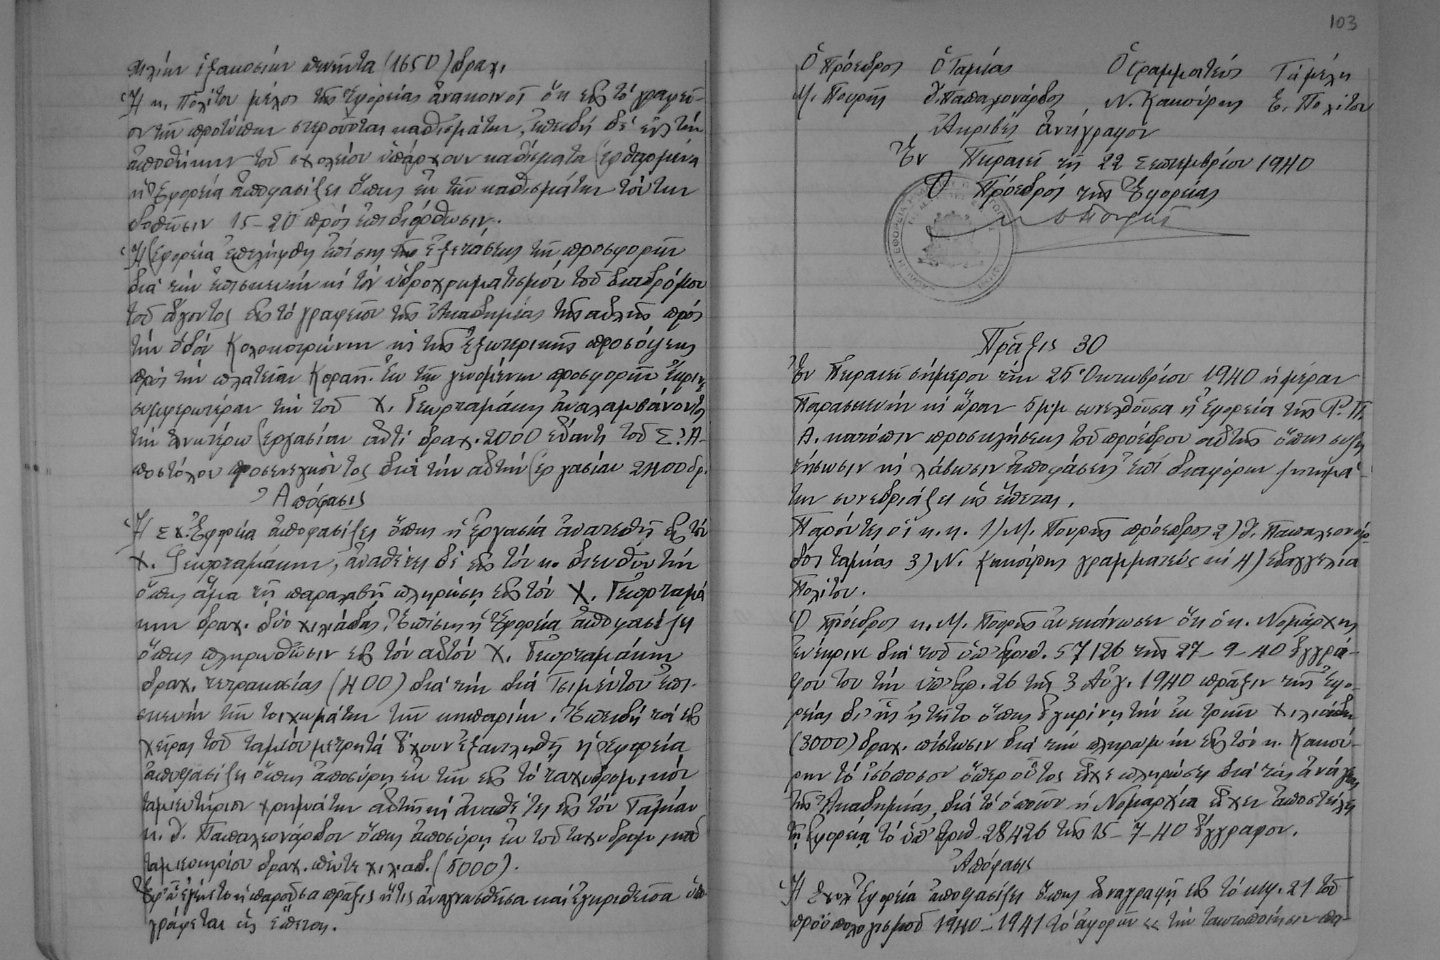 χιλίων ἑξακοσίων πενῆντα (1650) δραχ.
Ἡ κ. Πολίτου μέλος τῆς Ἐφορείας ἀνακοινοῖ ὅτι εἰς τό γραφεῖ-
ον τῶν προτύπων στεροῦνται καθισμάτων, ἐπειδή δέ εἰς τήν
ἀποθήκην τοῦ σχολείου ὑπάρχουν καθίσματα ἐφθαρμένα
ἡ Ἐφορεία ἀποφασίζει ὅπως ἐκ τῶν καθισμάτων τούτων
δοθῶσιν 15-20 πρός ἐπιδιόρθωσιν.
Ἡ Ἐφορεία ἐπελήφθη ἐπίσης τῆς ἐξετάσεως τῶν προσφορῶν
διά τήν ἐπισκευήν κ τόν ὑδροχρωματισμόν τοῦ διαδρόμου
τοῦ ἄγοντος εἰς τό γραφεῖον τῆς Ἀκαδημίας τῆς αὐλῆς πρός
τήν ὁδόν Κολοκοτρώνη κ τῆς ἐξωτερικῆς προσόψεως
πρός τήν πλατεῖαν Κοραῆ. Ἐκ τῶν γενομένων προσφορῶν ἔκρινε
συμφερωτέραν τήν τοῦ Χ. Γεωρταμάκη ἀναλαμβάνοντος
τήν ἀνωτέρω ἐργασίαν ἀντί δραχ. 2000 ἔναντι τοῦ Σ. Ἀ-
ποστόλου προσενεγκόντος διά τήν αὐτήν ἐργασίαν 2400 δρ.
Ἀπόφασις
Ἡ Σχ. Ἐφορεία ἀποφασίζει ὅπως ἡ ἐργασία ἀνατεθῇ εἰς τόν
Χ. Γεωρταμάκην, ἀναθέτει δέ εἰς τόν κ. διευθυντήν
ὅπως ἅμα τῇ παραλαβῇ πληρώσῃ εἰς τόν Χ. Γεωρταμά
κην δραχ. δύο χιλιάδας. Ἐπίσης ἡ Ἐφορεία ἀποφασίζει
ὅπως πληρωθῶσιν εἰς τόν αὐτόν Χ. Γεωρταμάκην
δραχ. τετρακοσίας (400) διά τήν διά τσιμέντου ἐπι-
σκευήν τῶν τοιχωμάτων τῶν κηπαρίων. Ἐπειδή τά εἰς
χεῖρας τοῦ ταμίου μετρητά ἔχουν ἐξαντληθῆ ἡ Ἐφορεία
ἀποφασίζει ὅπως ἀποσύρῃ ἐκ τῶν εἰς τό ταχυδρομικόν
ταμιευτήριον χρημάτων αὐτῆς κ ἀναθέτει εἰς τόν Ταμίαν
κ. Δ. Παπαλεονάρδον ὅπως ἀποσύρῃ ἐκ τοῦ ταχυδρομικοῦ
ταμιευτηρίου δραχ. πέντε χιλιάδ. (5000).
Ἐφ' ᾧ ἐγένετο ἡ παροῦσα πρᾶξις ἥτις ἀναγνωσθεῖσα καί ἐγκριθεῖσα ὑπο
γράφεται ὡς ἕπεται.
103
Ὁ Πρόεδρος Ὁ Ταμίας Ὁ Γραμματεύς Τά μέλη
Μ. Πουρῆς Δ. Παπαλεονάρδος Ν. Κακούρης Ε. Πολίτου
Ἀκριβές ἀντίγραφον
Ἐν Πειραιεῖ τῇ 22 Σεπτεμβρίου 1940
Ὁ Πρόεδρος τῆς Ἐφορείας
Πρᾶξις 30
Ἐν Πειραιεῖ σήμερον τήν 25 Ὀκτωβρίου 1940 ἡμέραν
Παρασκευήν κ ὥραν 5 μμ συνελθοῦσα ἡ Ἐφορεία τῆς Ρ. Π.
Α. κατόπιν προσκλήσεως τοῦ προέδρου αὐτῆς ὅπως συζη
τήσωσιν κ λάβωσιν ἀποφάσεις ἐπί διαφόρων ζητημά-
των συνεδριάζει ὡς ἕπεται.
Παρόντες οἱ κ.κ. 1) Μ. Πουρῆς πρόεδρος 2) Δ. Παπαλεονάρ-
δος ταμίας 3) Ν. Κακούρης γραμματεύς κ 4) Εὐαγγελία
Πολίτου.
Ὁ πρόεδρος κ. Μ. Πουρῆς ἀνεκοίνωσεν ὅτι ὁ κ. Νομάρχης
ἐνέκρινε διά τοῦ ὑπ' ἀριθ. 57126 τῆς 27-9-40 ἐγγρά-
φου του τήν ὑπ' ἀρ. 26 τῆς 3 Αὐγ. 1940 πρᾶξιν τῆς Ἐφο-
ρείας δι' ἧς ᾐτεῖτο ὅπως ἐγκρίνῃ τήν ἐκ τριῶν χιλιάδων
(3000) δραχ. πίστωσιν διά τήν πληρωμήν εἰς τόν κ. Κακού-
ρην τό ἰσόποσον ὅπερ οὗτος εἶχε πληρώσει διά τάς ἀνάγκας
τῆς Ἀκαδημίας, διά τό ὁποῖον ἡ Νομαρχία εἶχεν ἀποστείλει
τῇ Ἐφορείᾳ τό ὑπ' ἀριθ. 28426 τῆς 15-7-40 ἔγγραφον.
Ἀπόφασις
Ἡ Σχολ Ἐφορεία ἀποφασίζει ὅπως ἀναγραφῇ εἰς τό κεφ. 21 τοῦ
προϋπολογισμοῦ 1940-1941 τό ἀφορῶν «τήν τακτοποίησιν πα-